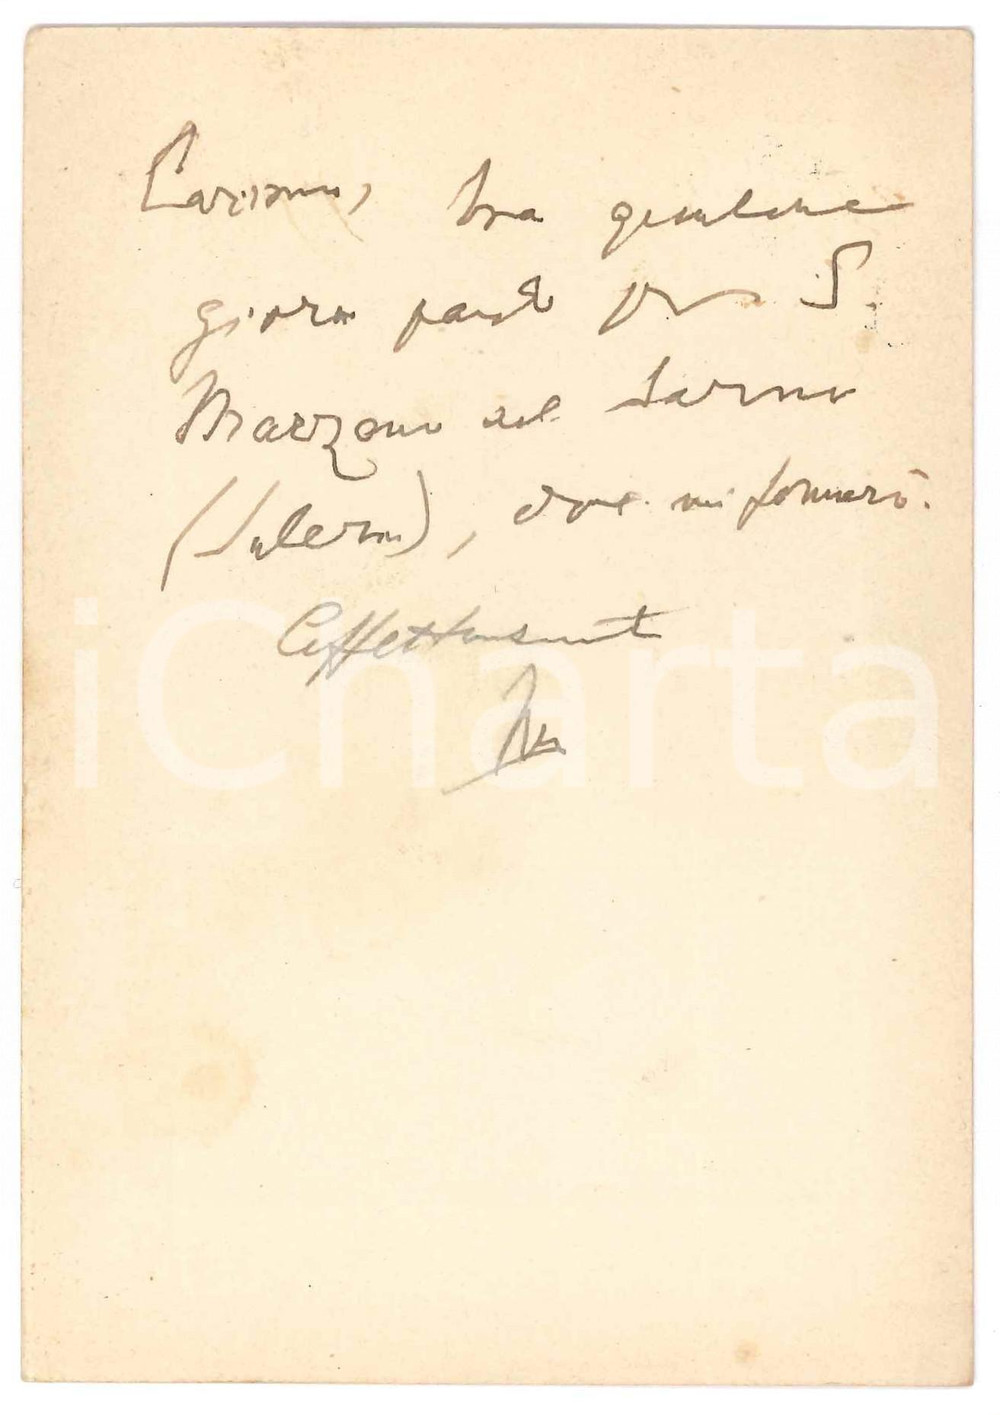 Carissimo, tra qualche
giorno parto per S.
Marzano sul Sarno
(Salerno), dove mi fermerò.
Affettuosamente
iCharta